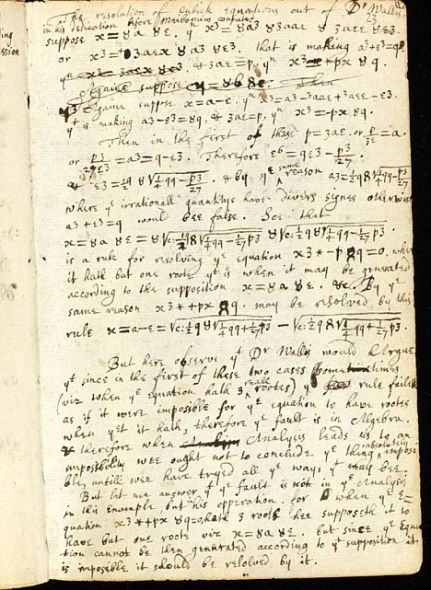 The resolution of Cubick equations out of Dr Wallis
in his dedication before Meibomius confuted
suppose x = 8a 8e. yn x3 = 8a3 83aae 8 3aee 8e3.
or x3 = 83aex 8a3 8e3. that is making a3+e3=q
yn 3ae = p. yn x3 px 8q.
Againe suppose
Againe suppose x = a-e. yn x3=a3-3aae+3aee-e3.
yt is making a3-e3=8q. & 3ae=p. yn x3 = -px 8q.
Then in the first of these p=3ae. or p/3e=a.
or p3/27e3=a3=q-e3. Therefore e6=qe3-p3/27.
& e3=½q 8√¼qq-p3/27. & by ye same reason a3=½q8√¼qq-p3/27
where ye irrationall quantitys have divers signes otherwise
a3+e3=q would bee false. Soe that
x = 8a 8e = 8√c:½q8√¼qq-1/27p3 8√c:½q8√¼qq-1/27p3.
is a rule for resolving ye equation x3*-p8q=0. when
it hath but one roote yt is when it may be generated
according to the supposition x=8a 8e. &c. By ye
same reason x3*+px 8q. may be resolved by this
rule x=a-e=√c:½q8√¼qq+1/27p3 - √c:½q8√¼qq+1/27p3.
But here observe yt Dr Wallis would Argue
yt since in the first of these two cases sometimes
(viz when ye equation hath 3 reall rootes) ye rule failes
as if it were impossible for ye equation to have rootes
when yet it hath, therefore ye fault is in Algebra.
& therefore when Analysis leads us to an
impossibility wee ought not to conclude ye thing absolutely impossi
ble, untill wee have tryed all ye ways yt may bee.
But let mee answer yt ye fault is not in ye Analysis
in this Example, but his operation. for when ye E=
quation x3*+px 8q=0 hath 3 roots hee supposeth it to
have but one roote viz x=8a 8e. but since ye Equa
tion cannot be then generated according to yt supposition it
is impossible it should be resolved by it.